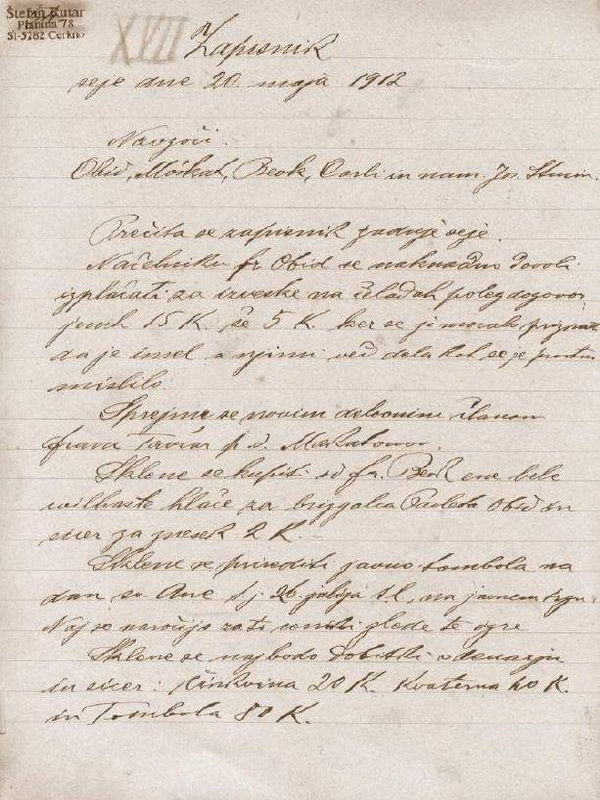 Štefan Kutar
Planina 78
SI-5282 Cerkno
XVII Zapisnik
seje dne 20. maja 1912
Navzoči:
Obid, Močkat, Beok, in nam. Jos.
Prečita se zapisnik zadnje seje.
Načelniku fr. Obid se naknadno dovoli
izplačati za izveske na čeladah poleg dogovor
jenih 15 K. še 5 K. ker se ji mora priznati
da je imel z njimi več dela kot se je prvotno
mislilo.
Sprejme se novim delovnim članom
p. d.
Sklene se kupiti od fr. Beok ene bele
hlače za Obid in
sicer za znesek 2 K.
Sklene se prirediti javno tombola na
dan sv. Ane t. j. 26 julija t. l. na javnem trgu.
Naj se naroči zato glede te igre
Sklene se naj bodo dobitki v denarju
in sicer: Činkvina 20 K. Kvaterna 40 K.
in Tombola 80 K.